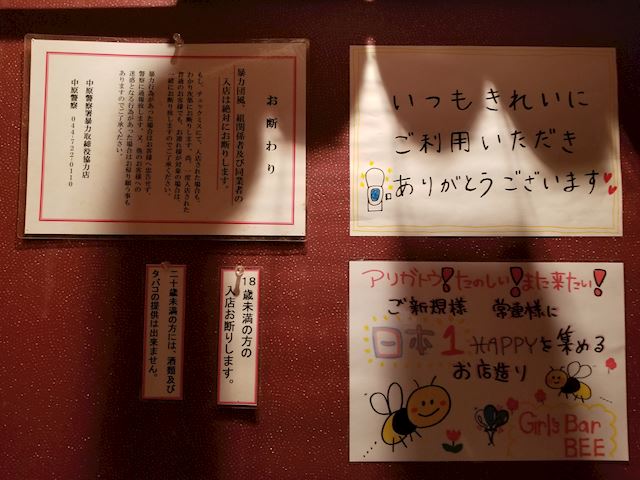 お断わり
暴力団風、組関係者及び同業者の
入店は絶対にお断りします。
もし、チェックミスにて、入店された場合も、
わかり次第にお断りします。尚、一度入店された
普通のお客様でも、お連れ様が対象の場合は、
一緒にお断り致しますのでご了承ください。
暴力行為があった場合はお客様へ忠告せず、
警察に通報致します。又、他のお客様への
迷惑となる行為があった場合はお帰り願う事も
ありますのでご了承ください。
中原警察署暴力取締役協力店
中原警察 044-722-0110
いつもきれいに
ご利用いただき
ありがとうございます
18歳未満の方の
入店お断りします。
二十歳未満の方には、酒類及び
タバコの提供は出来ません。
アリガトウ!たのしい!また来たい!
ご新規様 常連様に
日本1 HAPPYを集める
お店造り
Girl's Bar
BEE